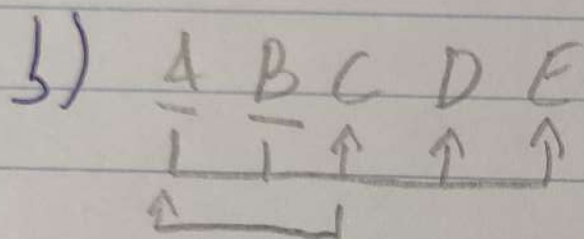 b) A B C D E